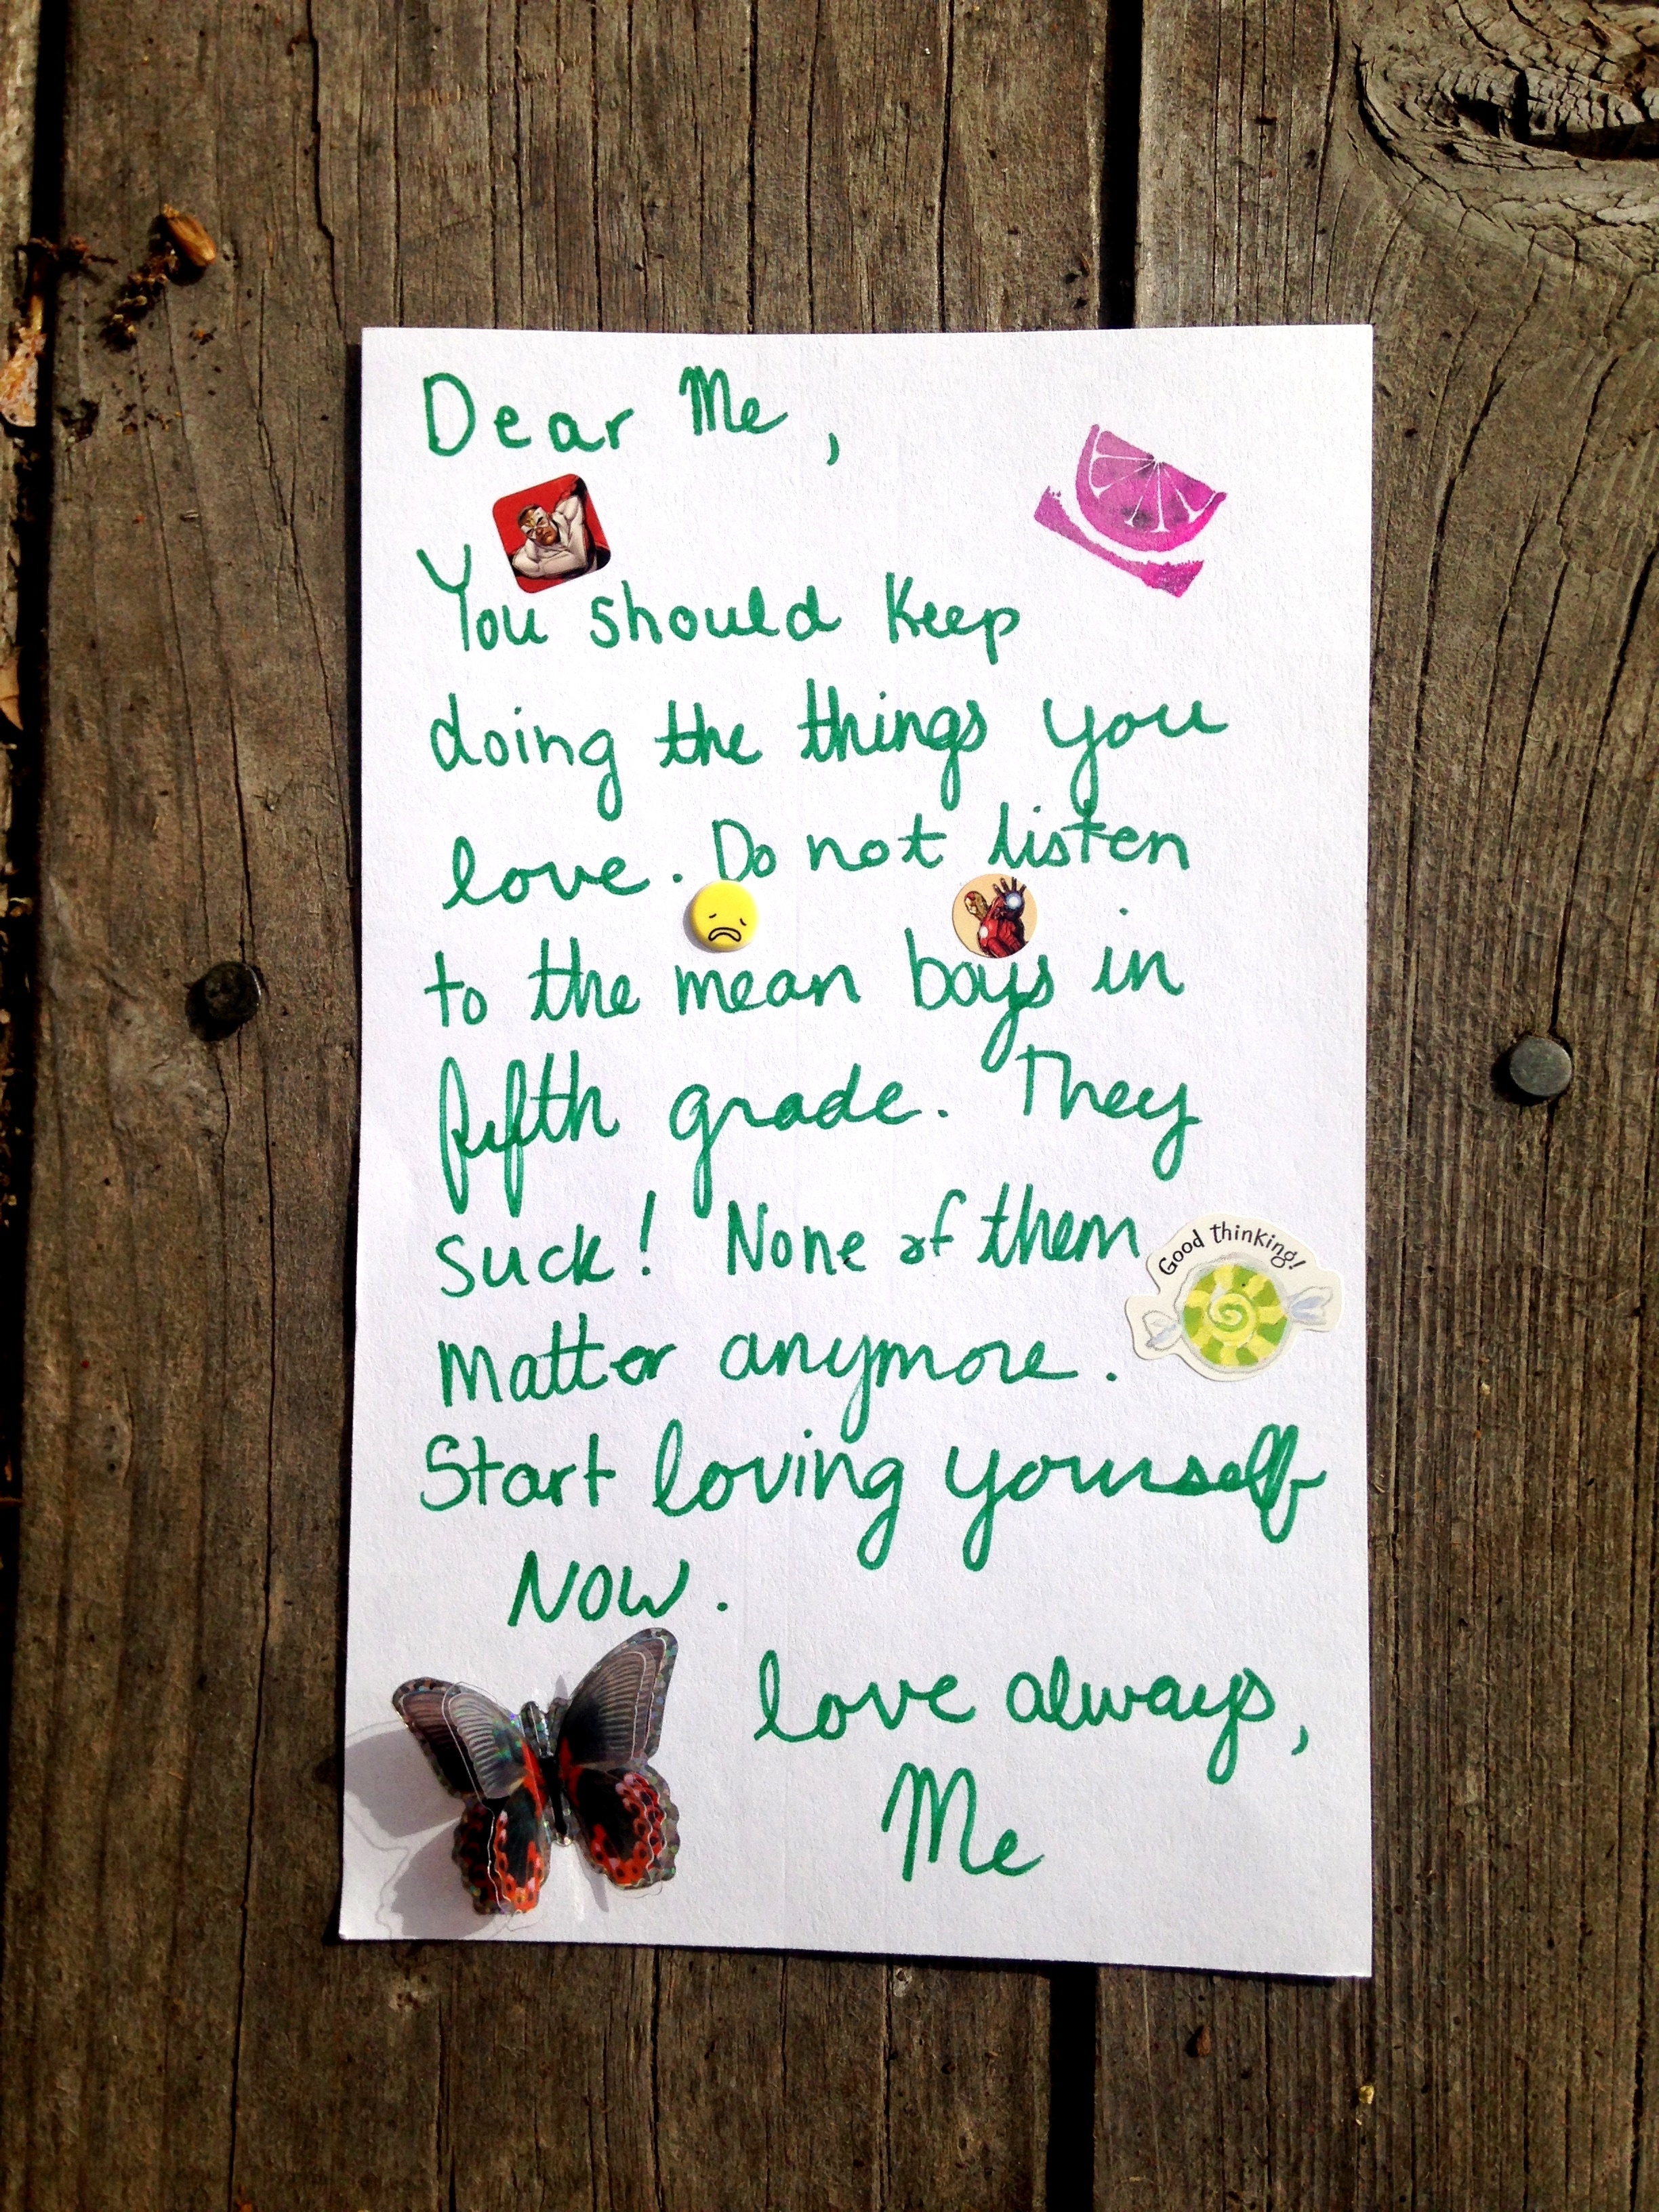 Dear Me,
You should keep
doing the things you
love. Do not listen
to the mean boys in
fifth grade. They
suck! None of them
Good thinking!
matter anymore.
Start loving yourself
NOW.
love always,
Me